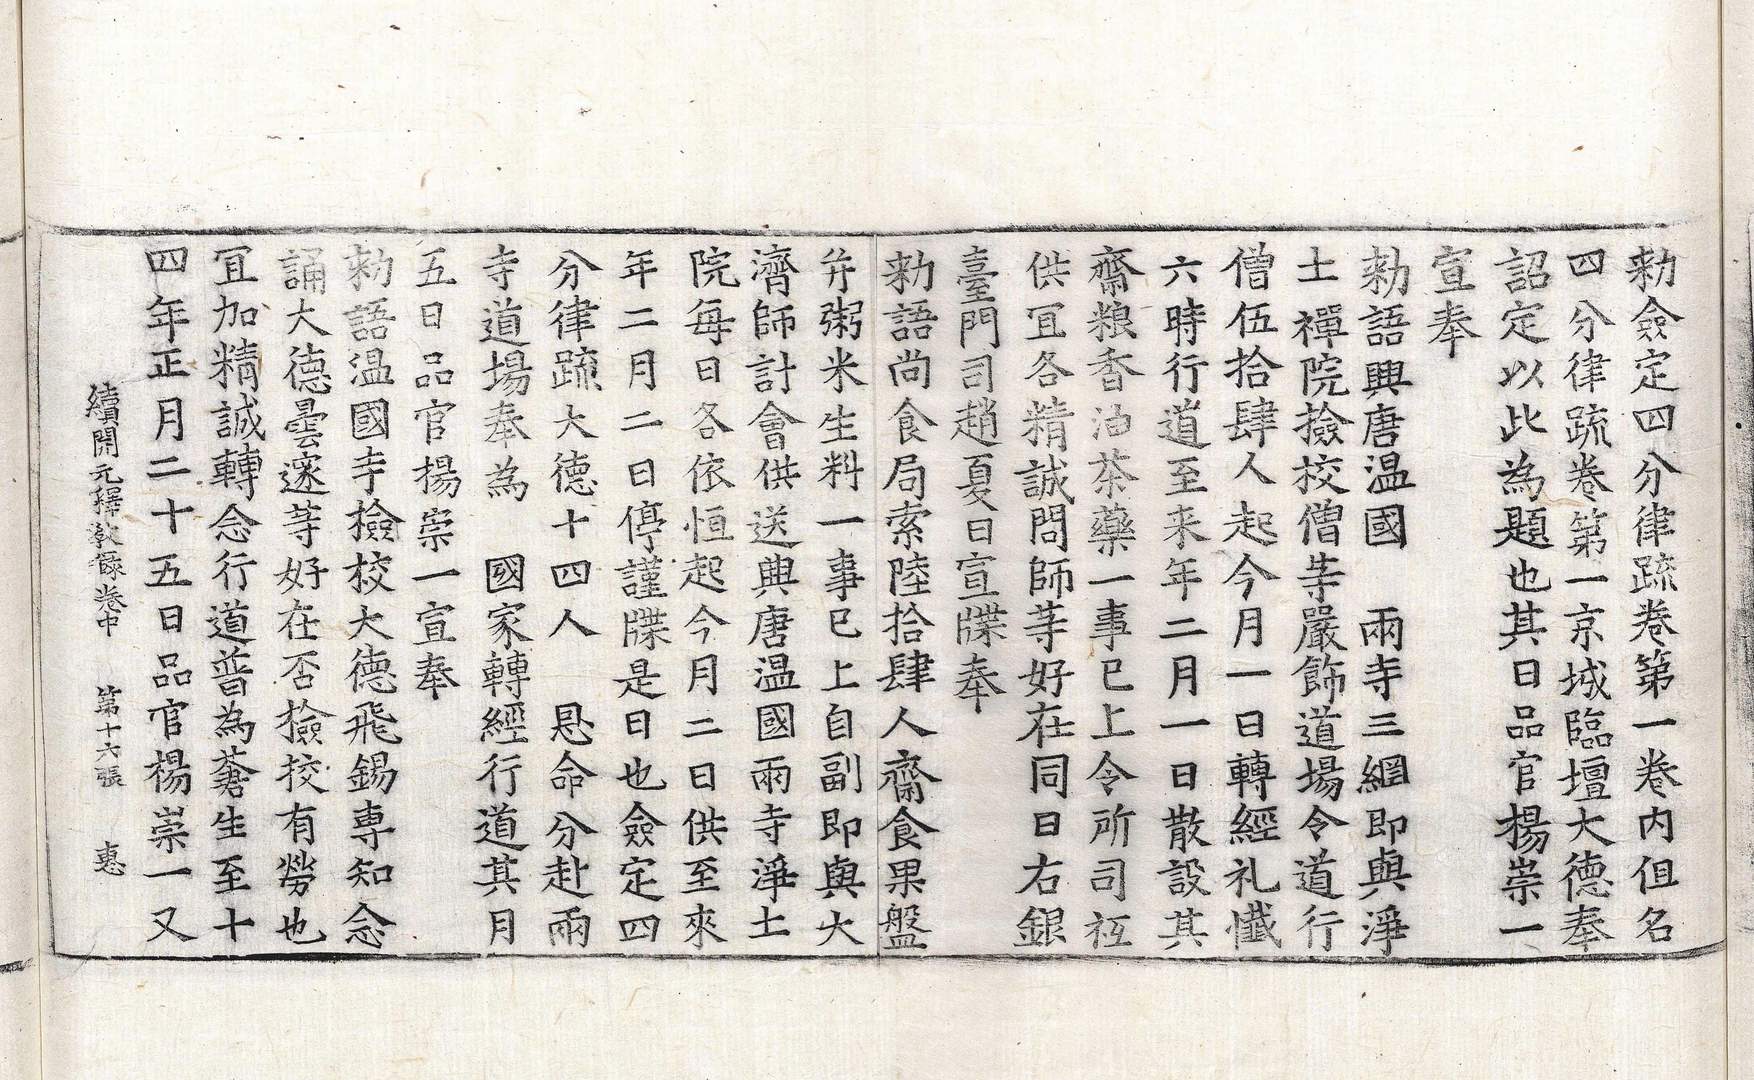 勑僉定四分律疏卷第一卷内但名
四分律疏卷第一京城臨壇大德奉
詔定以此為題也其日品官楊崇一
宣奉
勑語興唐温國　兩寺三綱即與淨
土禪院撿挍僧等嚴飾道場令道行
僧伍拾肆人起今月一日轉經礼懺
六時行道至来年二月一日散設其
齋粮香油茶藥一事已上令所司祗
供冝各精誠問師等好在同日右銀
臺門司趙夏日宣牒奉
勑語尚食局索陸拾肆人齋食果盤
并粥米生料一事已上自副即與火
濟師計會供送興唐温國兩寺淨土
院每日各依恒起今月二日供至來
年二月二日停謹牒是日也僉定四
分律䟽大德十四人　恩命分赴兩
寺道場奉為　國家轉經行道其月
五日品官楊崇一宣奉
勑語温國寺撿挍大德飛錫專知念
誦大德曇邃等好在否撿挍有勞也
冝加精誠轉念行道普為蒼生至十
四年正月二十五日品官楊崇一又
續開元釋教錄卷中　第十六張　惠